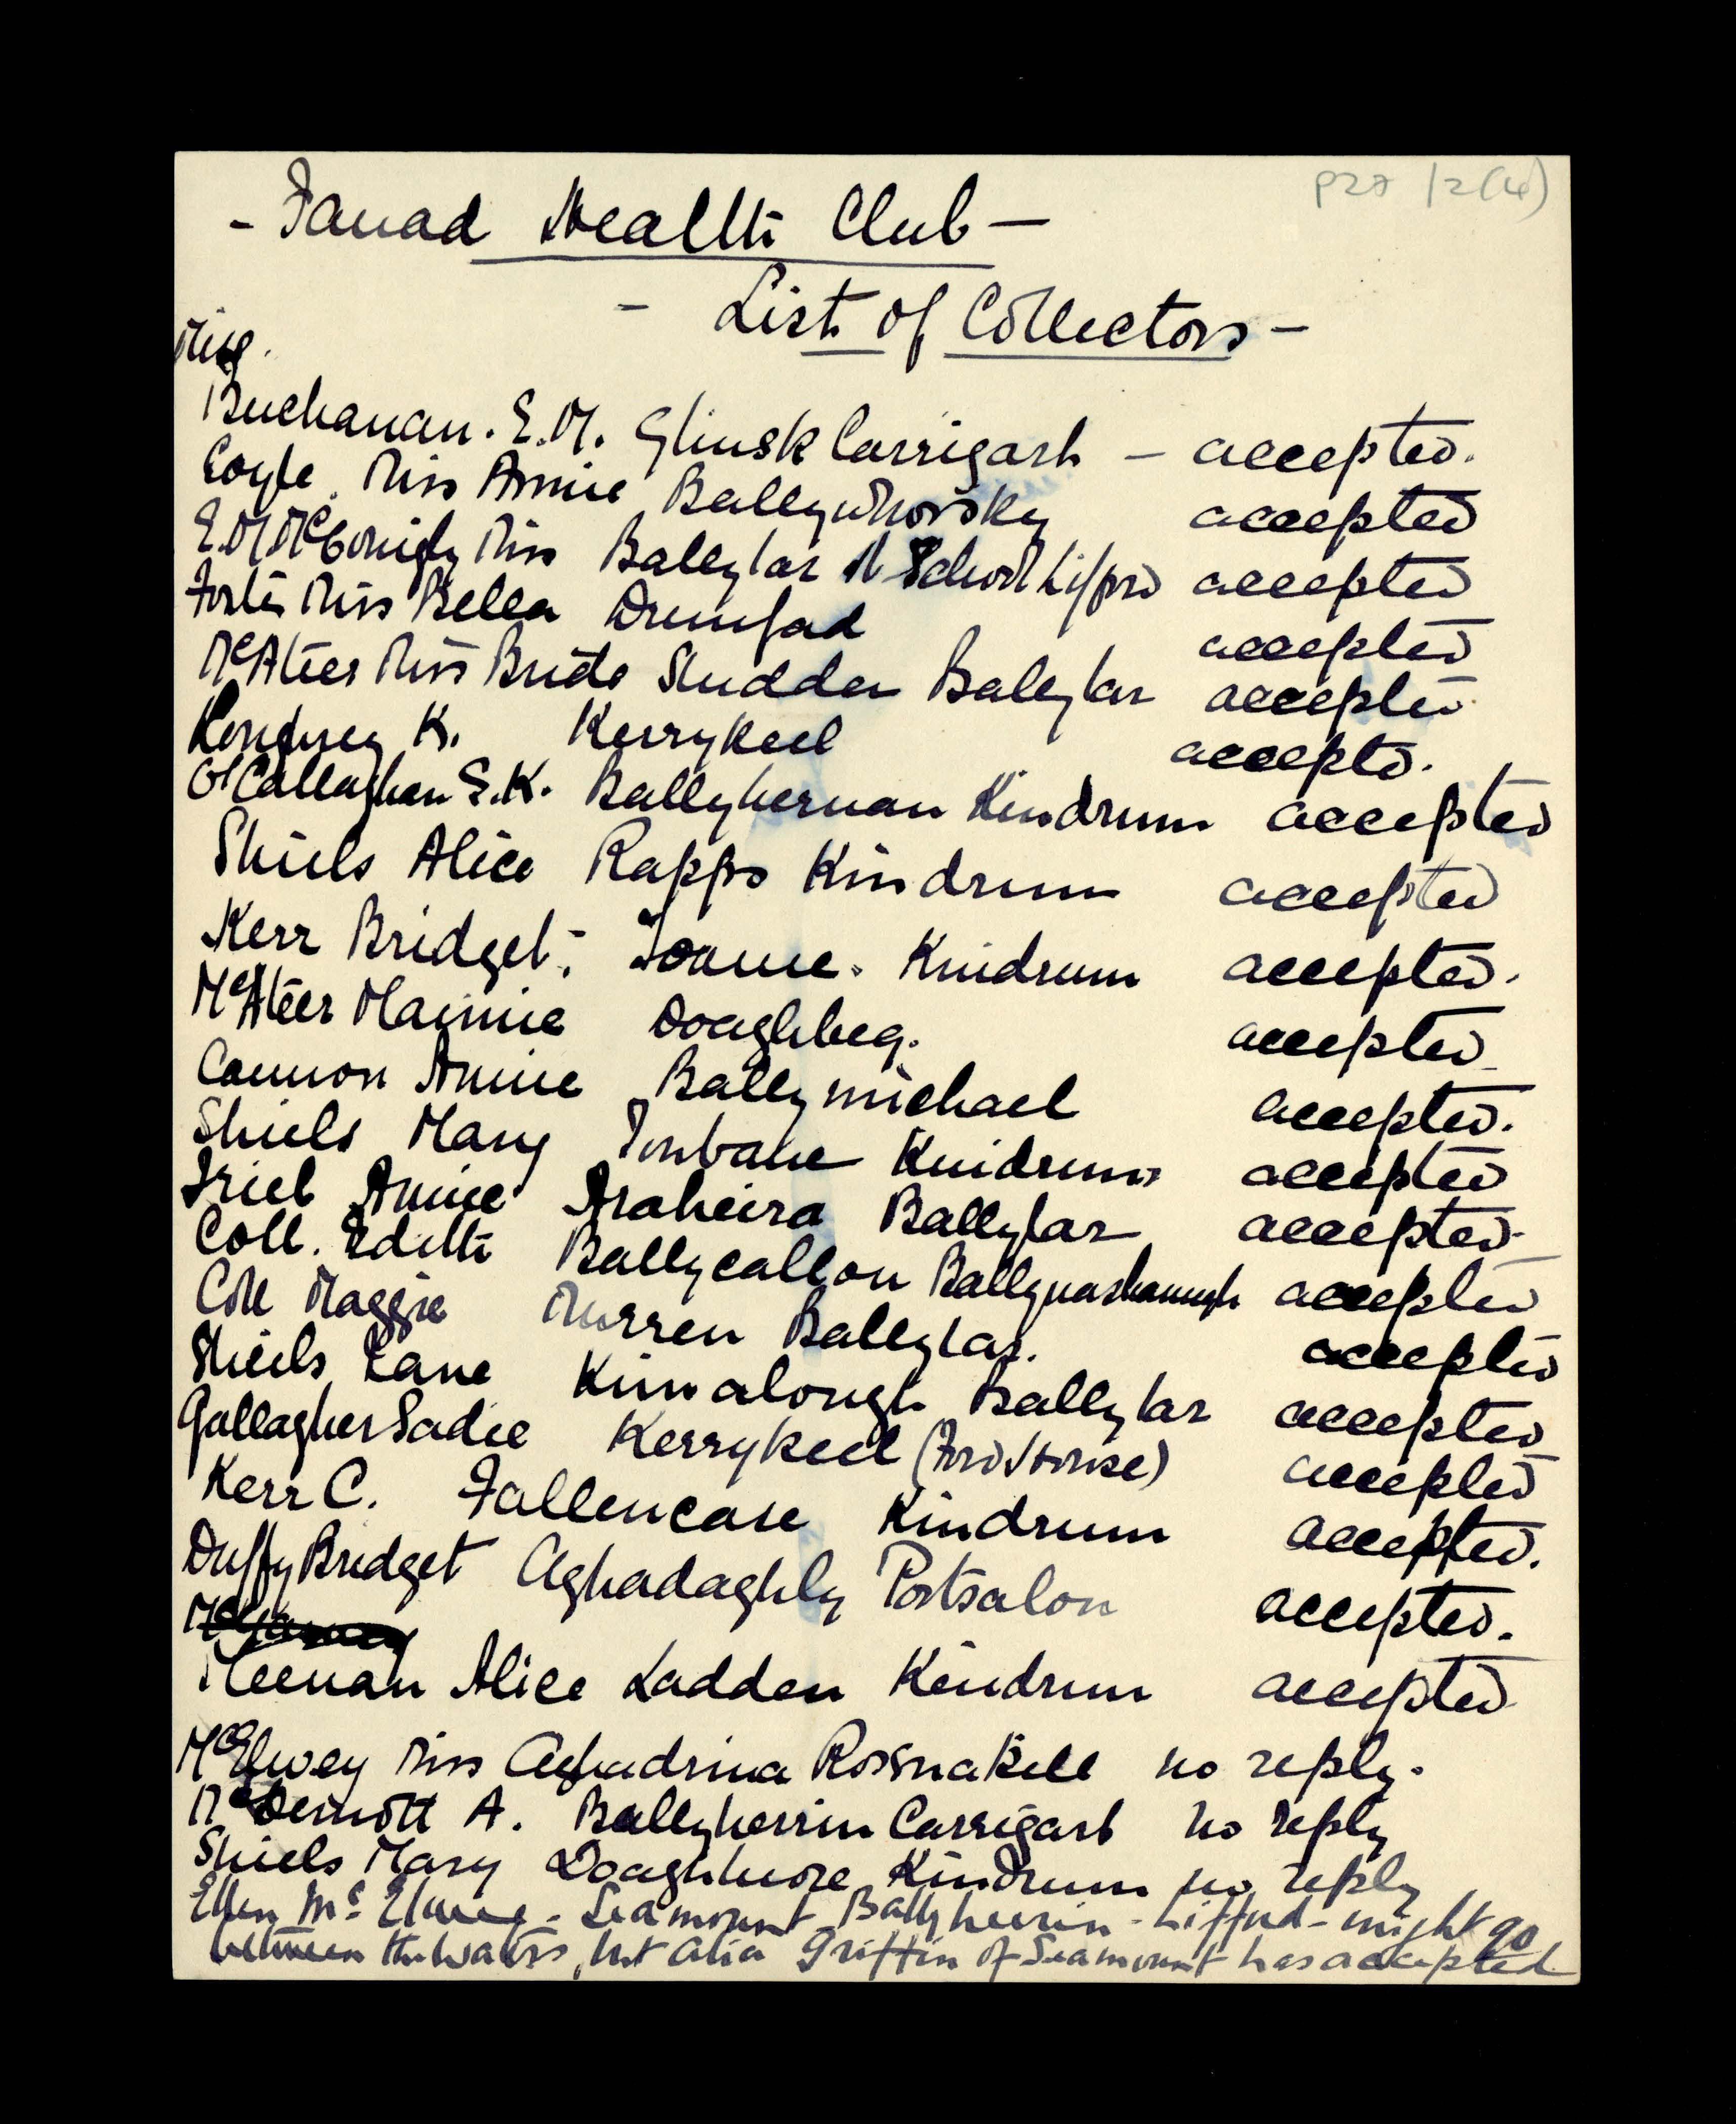 P27/2(4)
- Fanad Health Club -
- List of Collectors -
Miss.
Buchanan. E.M. Glinsk Carrigart - accepted.
Coyle. Miss Annie Ballywhorsky accepted
E.M McGonigly Miss Ballylar N School Lifford accepted
Miss Bella Drumfad accepted
McAteer Miss Bride Sludden Ballylar accepted
K. Kerrykeel acceptd.
O'Callaghan E.K. Ballyhernan Kindrum accepted
Shiels Alice Rappo Kindrum accepted
Kerr Bridget. Kindrum accepted.
McAteer Maimie Doaghbeg. accepted
Cannon Annie Ballymichael accepted.
Shiels Mary Tonbane Kindrum accepted
Friel Annie Araheira Ballylar accepted
Coll. Edith Ballycallon Ballynashannagh accepted
Coll Maggie Murren Ballylar. accepted
Shiels Kinnalough Ballylar accepted
Gallagher Sadie Kerrykeel (Ford House) accepted
Kerr C. Fallencase Kindrum accepted.
Duffy Bridget Aghadaghly Portsalon accepted.
Meenan Alice Ladden Kindrum accepted
McElwey Miss Aghadrina Rossnakill no reply.
McDermott A. Ballyherrin Carrigart no reply
Shiels Mary Doaghmore Kindrum no reply
Ellen Mc - Seamount - Ballyheerin - Lifford - might go
between the waters, but Griffin of Seamount has accepted